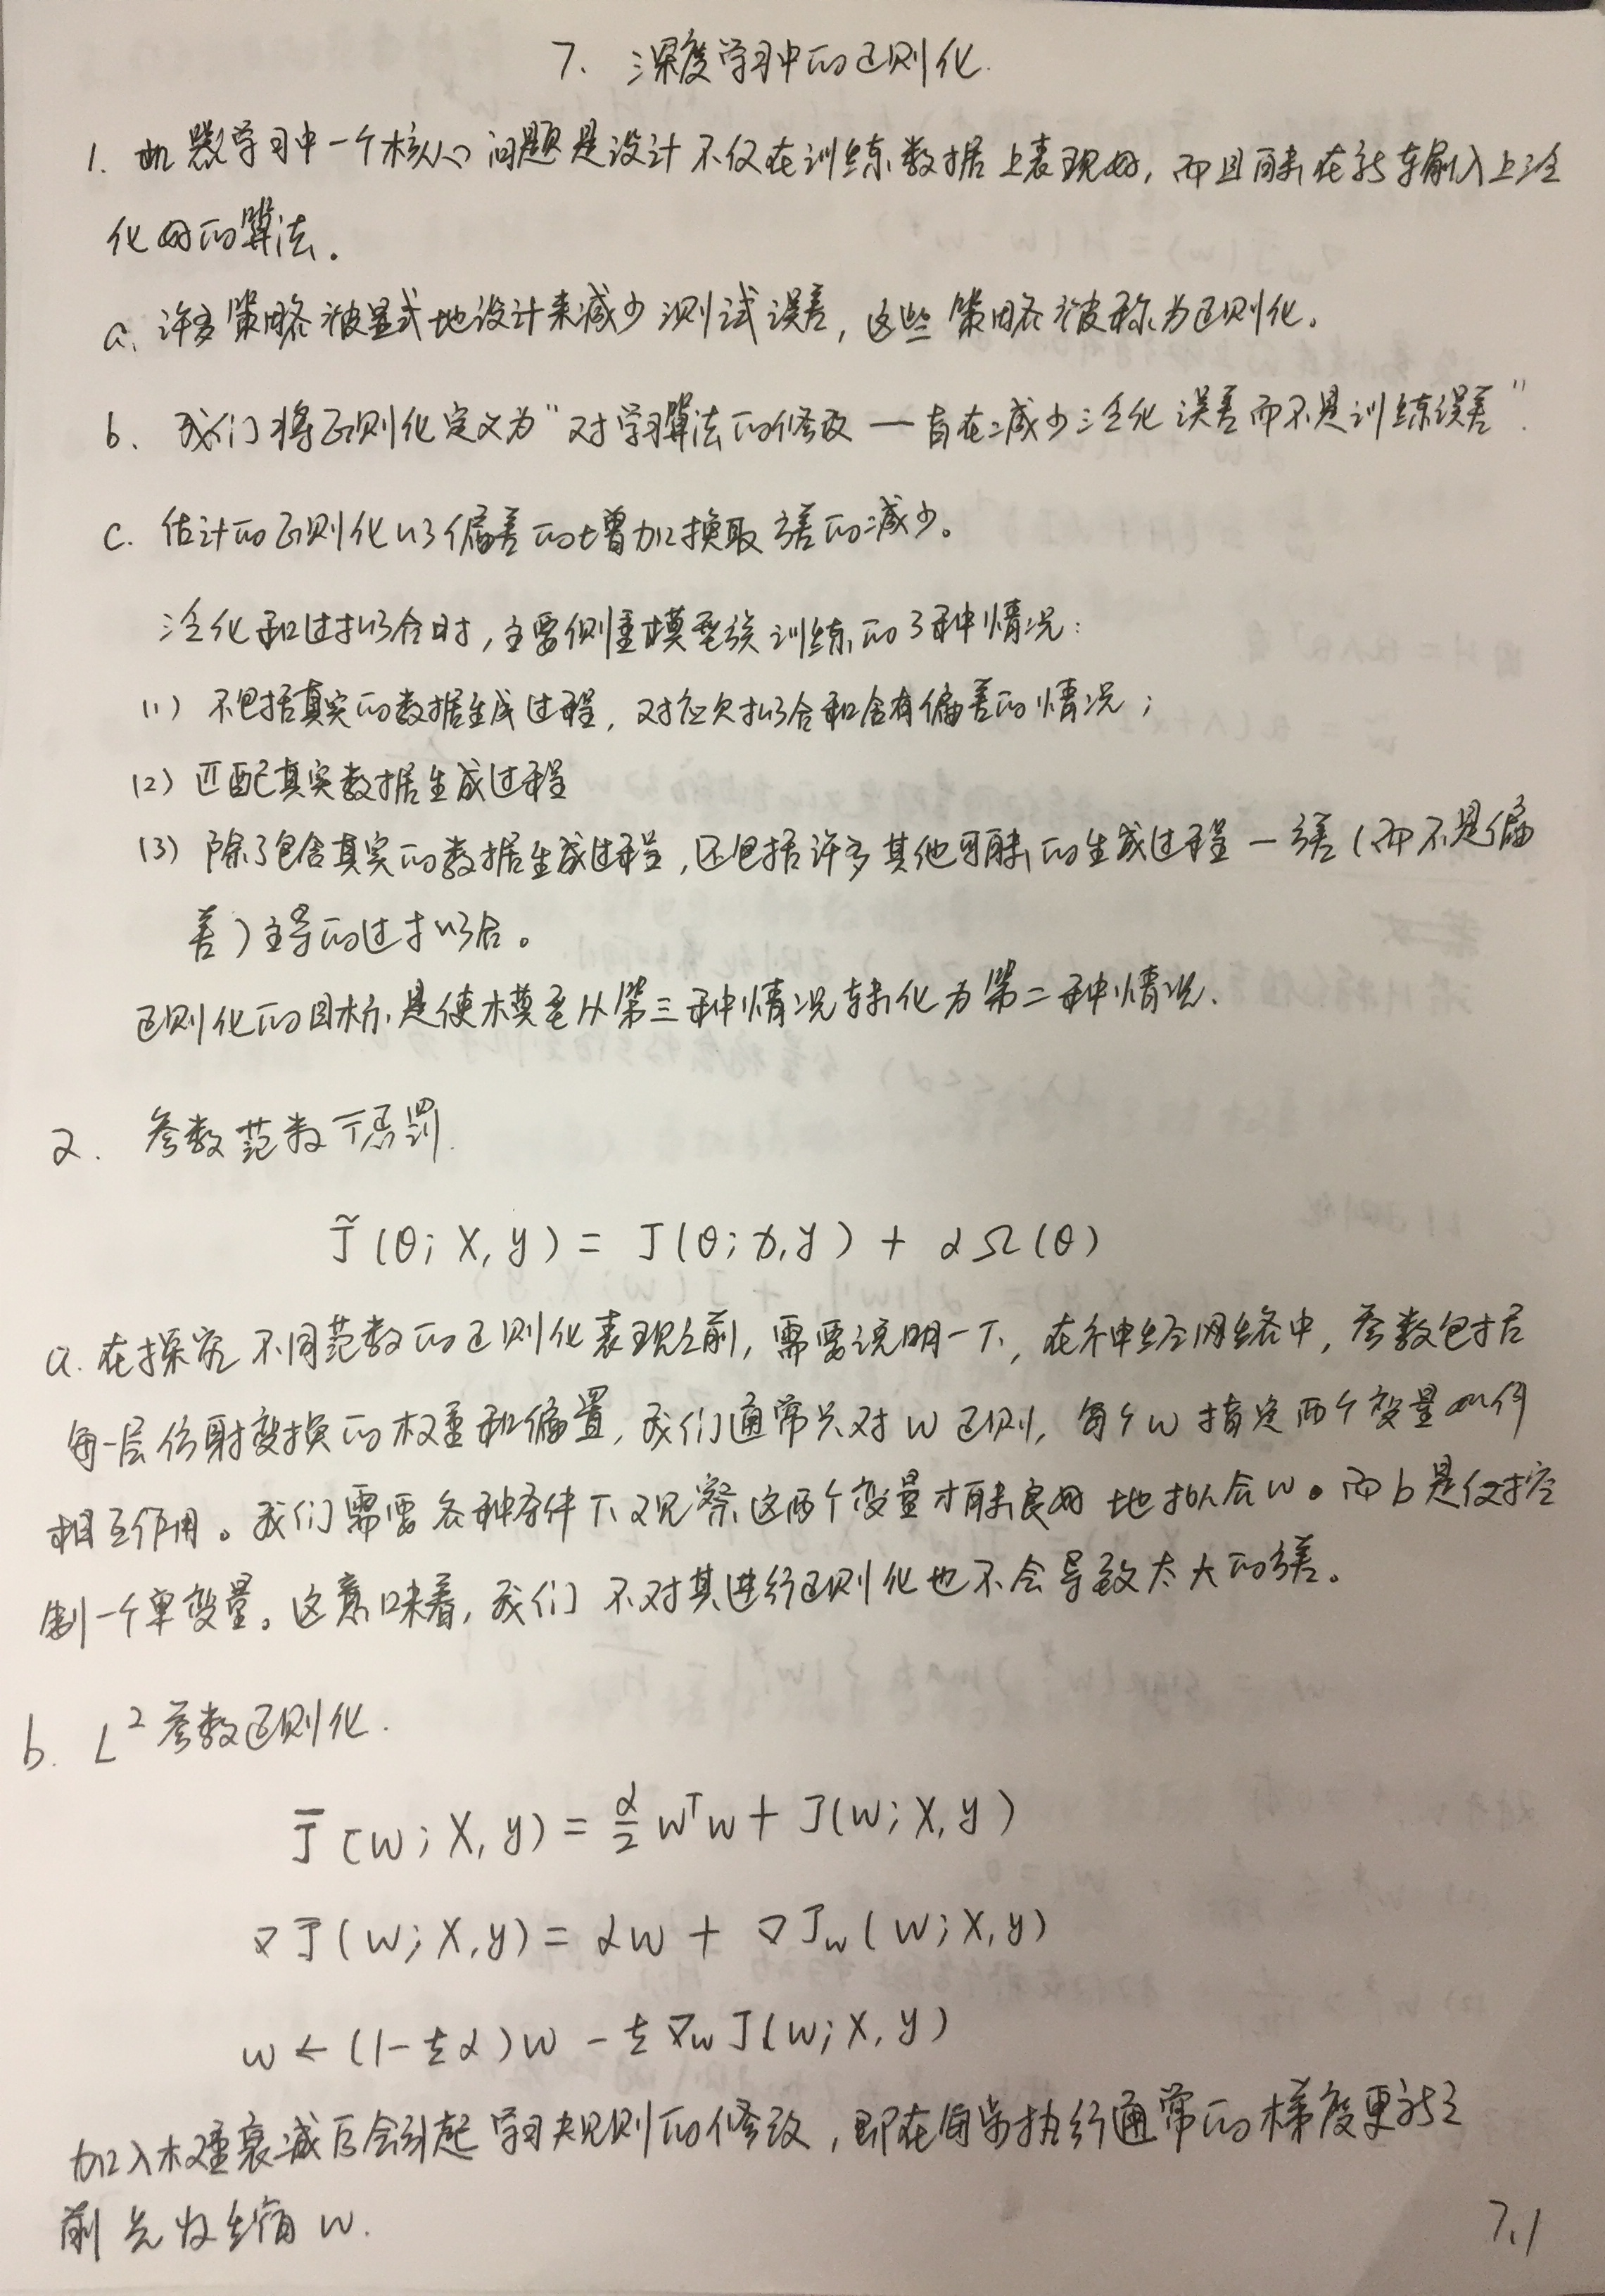 7. 深度学习中的正则化.
1. 机器学习中一个核心问题是设计不仅在训练数据上表现好, 而且能在新输入上泛
化好的算法.
a. 许多策略被显式地设计来减少测试误差, 这些策略被称为正则化。
b. 我们将正则化定义为"对学习算法的修改—旨在减少泛化误差而不是训练误差".
c. 估计的正则化以偏差的增加换取方差的减少。
泛化和过拟合时, 主要侧重模型族训练的3种情况:
(1) 不包括真实的数据生成过程, 对应欠拟合和含有偏差的情况;
(2) 匹配真实数据生成过程
(3) 除了包含真实的数据生成过程, 还包括许多其他可能的生成过程—方差(而不是偏
差)主导的过拟合。
正则化的目标是使模型从第三种情况转化为第二种情况.
2. 参数范数惩罚.
J̃(θ; X, y) = J(θ; X, y) + αΩ(θ)
a. 在探究不同范数的正则化表现之前, 需要说明一下, 在神经网络中, 参数包括
每一层仿射变换的权重和偏置, 我们通常只对w正则, 每个w指定两个变量如何
相互作用。我们需要各种条件下观察这两个变量才能良好地拟合w。而b是仅控
制一个单变量。这意味着, 我们不对其进行正则化也不会导致太大的方差。
b. L² 参数正则化.
J̅(w; X, y) = α/2 wᵀw + J(w; X, y)
∇J̅(w; X, y) = αw + ∇J_w(w; X, y)
w ← (1-ξα)w - ξ∇_w J(w; X, y)
加入权重衰减后会引起学习规则的修改, 即在每步执行通常的梯度更新之
前先收缩w.
7.1